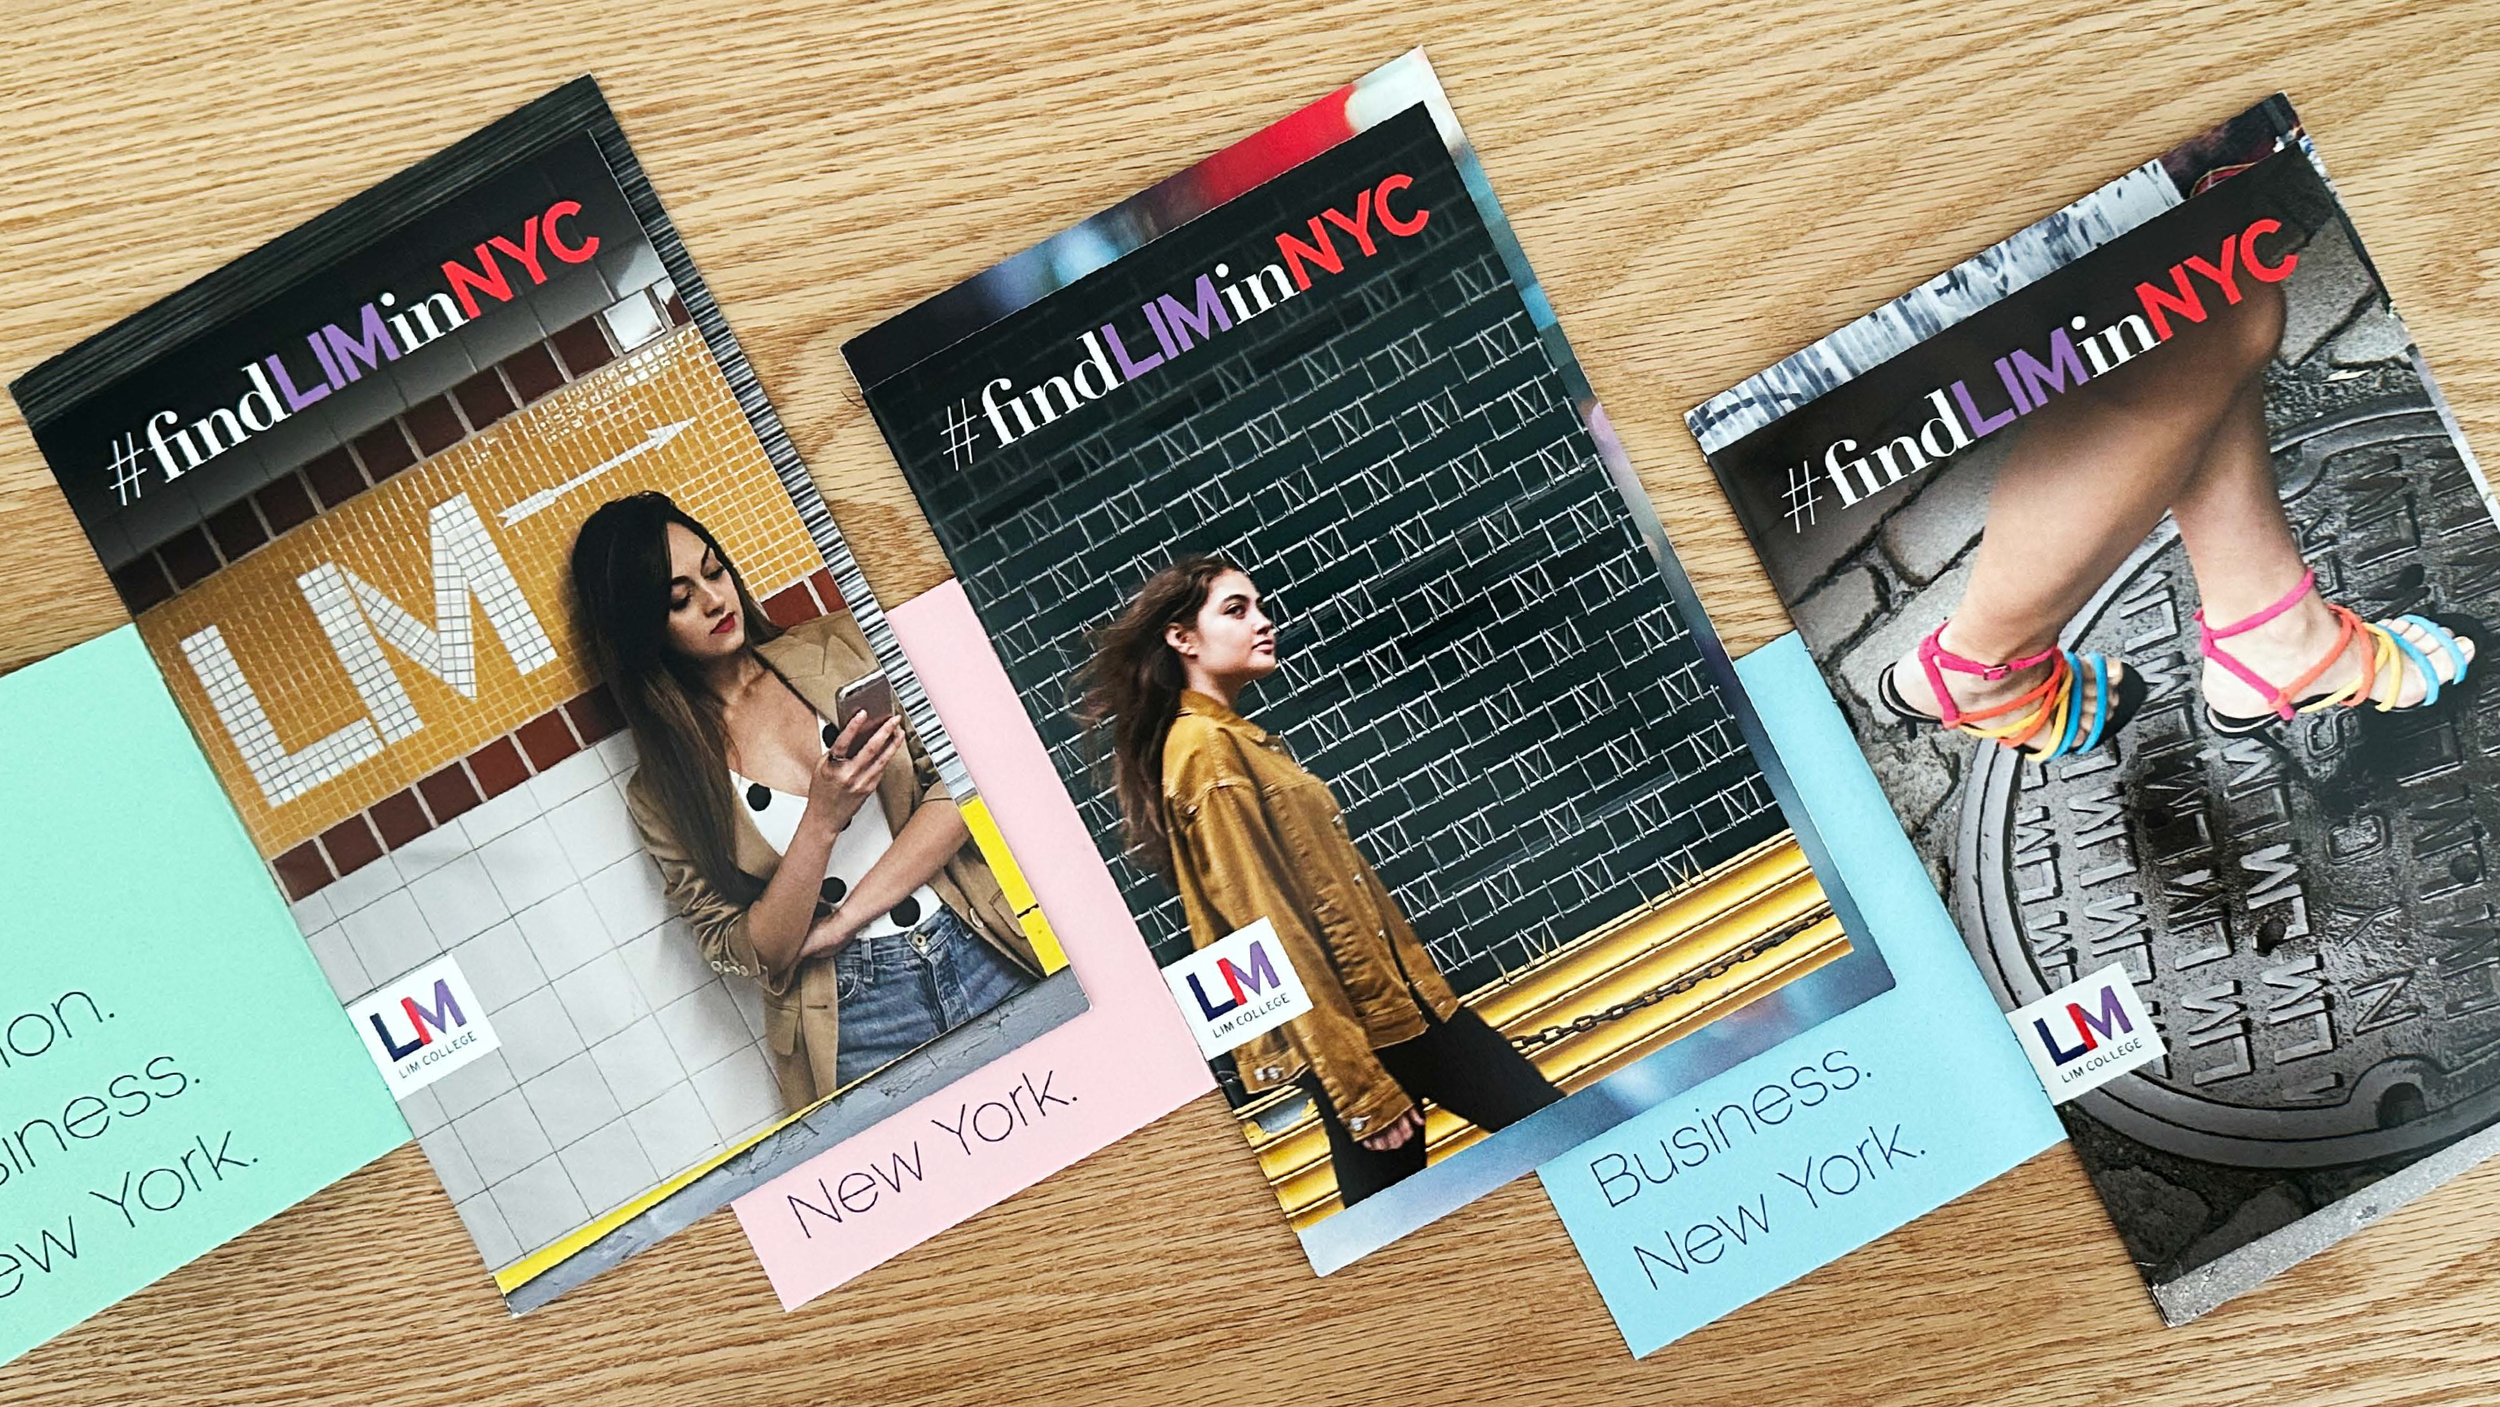 #findLIMinNYC
LIM
LIM
LIM COLLEGE
New York.
#findLIMinNYC
LIM
LIM COLLEGE
New York.
Business.
New York.
#findLIMinNYC
LIM
LIM COLLEGE
NYC